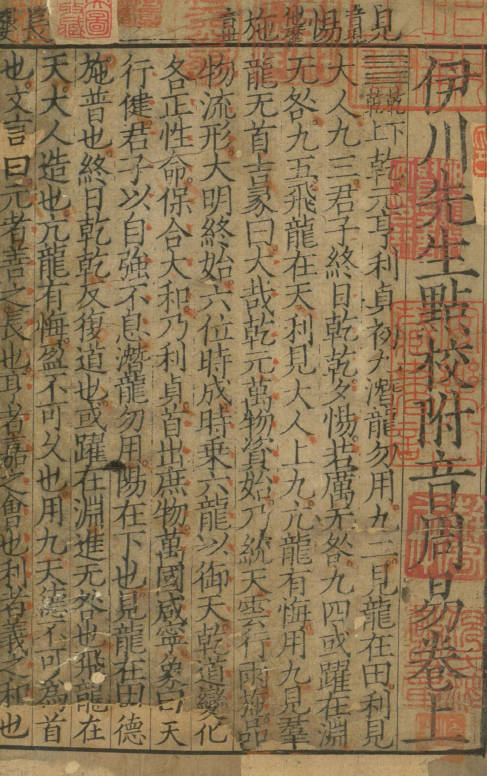 伊川先生點校附音周易卷上
乾下
乾上乾元亨利貞初九潛龍勿用九二見龍在田利見
大人九三君子終日乾乾夕惕若厲无咎九四或躍在淵
无咎九五飛龍在天利見大人上九亢龍有悔用九見羣
龍无首吉彖曰大哉乾元萬物資始乃統天雲行雨施品
物流形大明終始六位時成時乘六龍以御天乾道變化
各正性命保合大和乃利貞首出庶物萬國咸寧象曰天
行健君子以自強不息潛龍勿用陽在下也見龍在田德
施普也終日乾乾反復道也或躍在淵進无咎也飛龍在
天大人造也亢龍有悔盈不可久也用九天德不可為首
也文言曰元者善之長也亨者嘉之會也利者義之和也
見
惕
施
長